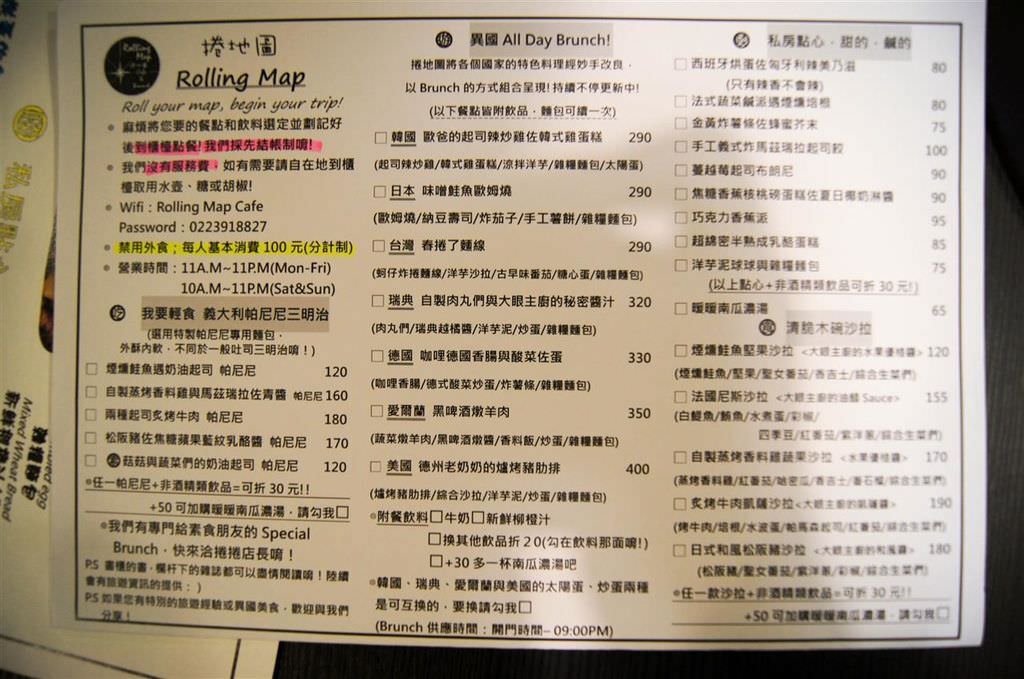 捲地圖
Rolling Map
Roll your map, begin your trip!
麻煩將您要的餐點和飲料選定並劃記好
後到櫃檯點餐! 我們採先結帳制唷!
我們沒有服務費，如有需要請自在地到櫃
檯取用水壺、糖或胡椒!
Wifi : Rolling Map Cafe
Password : 0223918827
禁用外食；每人基本消費 100 元(分計制)
營業時間：11A.M~11P.M(Mon-Fri)
10A.M~11P.M(Sat&Sun)
吃 我要輕食 義大利帕尼尼三明治
(選用特製帕尼尼專用麵包，
外酥內軟，不同於一般吐司三明治唷！)
煙燻鮭魚遇奶油起司 帕尼尼 120
自製蒸烤香料雞與馬茲瑞拉佐青醬 帕尼尼 160
兩種起司炙烤牛肉 帕尼尼 180
松阪豬佐焦糖蘋果藍紋乳酪醬 帕尼尼 170
菇菇與蔬菜們的奶油起司 帕尼尼 120
*任一帕尼尼+非酒精類飲品=可折 30 元!!
+50 可加購暖暖南瓜濃湯，請勾我□
*我們有專門給素食朋友的 Special
Brunch，快來洽捲捲店長唷！
P.S 書櫃的書, 欄杆下的雜誌都可以盡情閱讀唷！陸續
會有旅遊資訊的提供：)
P.S 如果您有特別的旅遊經驗或異國美食，歡迎與我們
分享！
異國 All Day Brunch!
捲地圖將各個國家的特色料理經妙手改良，
以 Brunch 的方式組合呈現! 持續不停更新中!
(以下餐點皆附飲品，麵包可續一次)
韓國 歐爸的起司辣炒雞佐韓式雞蛋糕 290
(起司辣炒雞/韓式雞蛋糕/涼拌洋芋/雜糧麵包/太陽蛋)
日本 味噌鮭魚歐姆燒 290
(歐姆燒/納豆壽司/炸茄子/手工薯餅/雜糧麵包)
台灣 春捲了麵線 290
(蚵仔炸捲麵線/洋芋沙拉/古早味番茄/糖心蛋/雜糧麵包)
瑞典 自製肉丸們與大眼主廚的秘密醬汁 320
(肉丸們/瑞典越橘醬/洋芋泥/炒蛋/雜糧麵包)
德國 咖哩德國香腸與酸菜佐蛋 330
(咖哩香腸/德式酸菜炒蛋/炸薯條/雜糧麵包)
愛爾蘭 黑啤酒燉羊肉 350
(蔬菜燉羊肉/黑啤酒燉醬/香料飯/炒蛋/雜糧麵包)
美國 德州老奶奶的爐烤豬肋排 400
(爐烤豬肋排/綜合沙拉/洋芋泥/炒蛋/雜糧麵包)
*附餐飲料□牛奶□新鮮柳橙汁
□換其他飲品折 20(勾在飲料那面唷!)
□+30 多一杯南瓜濃湯吧
*韓國、瑞典、愛爾蘭與美國的太陽蛋、炒蛋兩種
是可互換的，要換請勾我□
(Brunch 供應時間：開門時間– 09:00PM)
私房點心，甜的，鹹的
西班牙烘蛋佐匈牙利辣美乃滋 80
(只有辣香不會辣)
法式蔬菜鹹派遇煙燻培根 80
金黃炸薯條佐蜂蜜芥末 75
手工義式炸馬茲瑞拉起司餃 100
蔓越莓起司布朗尼 90
焦糖香蕉核桃磅蛋糕佐夏日椰奶淋醬 90
巧克力香蕉派 95
超綿密半熟成乳酪蛋糕 85
洋芋泥球球與雜糧麵包 75
(以上點心+非酒精類飲品可折 30 元!)
暖暖南瓜濃湯 65
清脆木碗沙拉
煙燻鮭魚堅果沙拉 <大眼主廚的水果優格醬> 120
(煙燻鮭魚/堅果/聖女番茄/香吉士/綜合生菜們)
法國尼斯沙拉 <大眼主廚的油醋 Sauce> 155
(白鯷魚/鮪魚/水煮蛋/彩椒/
四季豆/紅番茄/紫洋蔥/綜合生菜們)
自製蒸烤香料雞蔬果沙拉 <水果優格醬> 170
(蒸烤香料雞/紅番茄/哈密瓜/香吉士/番石榴/綜合生菜們)
炙烤牛肉凱薩沙拉 <大眼主廚的凱薩醬> 190
(烤牛肉/培根/水波蛋/帕馬森起司/紅番茄/綜合生菜們)
日式和風松阪豬沙拉 <大眼主廚的和風醬> 180
(松阪豬/聖女番茄/紫洋蔥/彩椒/綜合生菜們)
*任一款沙拉+非酒精類飲品=可折 30 元!!
+50 可加購暖暖南瓜濃湯，請勾我□
Mixed Wheat Bread
雜糧麵包